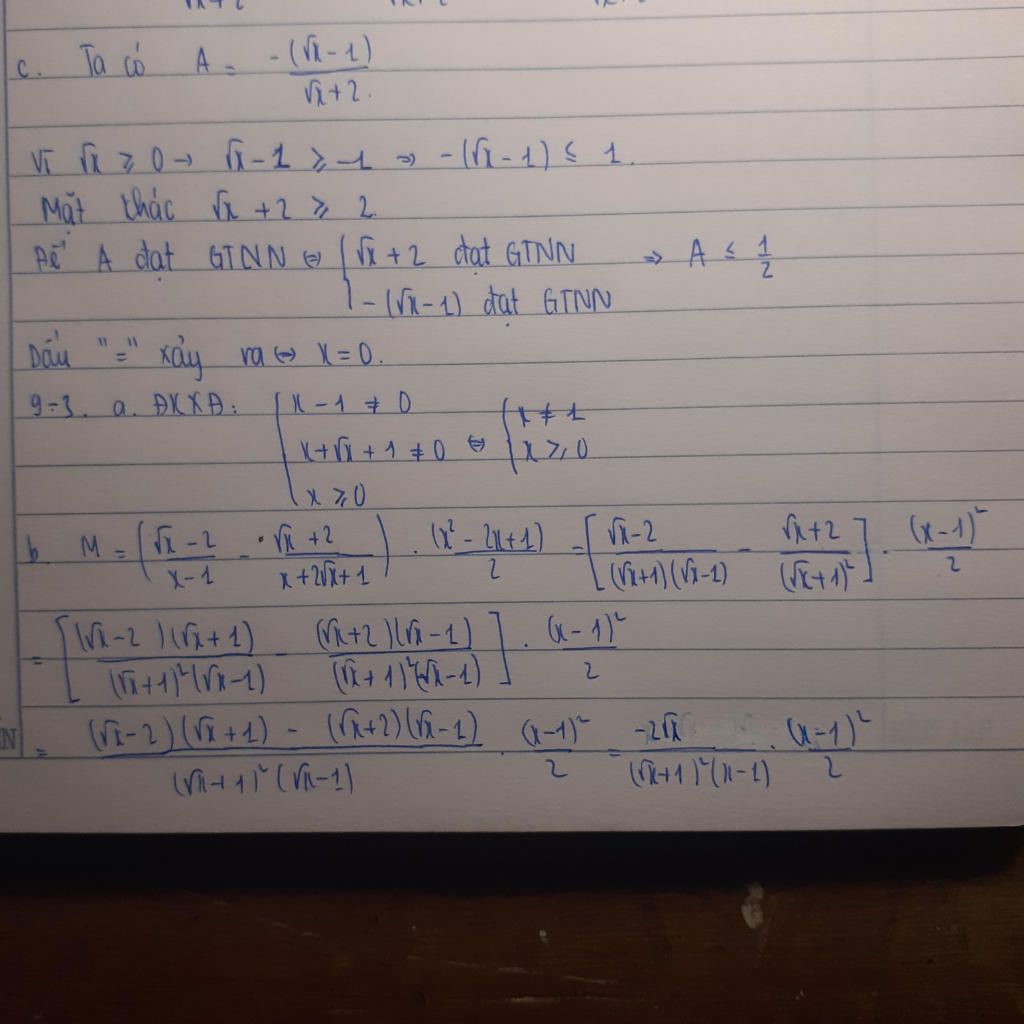 c. Ta có A = -(√x - 1)/(√x + 2.
Vì √x ≥ 0 → √x - 1 ≥ -1 ⇒ -(√x - 1) ≤ 1.
Mặt khác √x + 2 ≥ 2.
Để A đạt GTNN ⇔ { √x + 2 đạt GTNN ⇒ A ≤ 1/2
-(√x - 1) đạt GTNN
Dấu "=" xảy ra ⇔ x = 0.
9-3. a. ĐKXĐ: { x - 1 ≠ 0
x + √x + 1 ≠ 0 ⇔ { x ≠ 1
x ≥ 0
x ≥ 0
b. M = ((√x - 2)/(x - 1) - (√x + 2)/(x + 2√x + 1)) . (x² - 2x + 1)/2 = [(√x - 2)/((√x + 1)(√x - 1)) - (√x + 2)/(√x + 1)²] . (x - 1)²/2
= [(√x - 2)(√x + 1)/((√x + 1)²(√x - 1)) - (√x + 2)(√x - 1)/((√x + 1)²(√x - 1))] . (x - 1)²/2
N
= ((√x - 2)(√x + 1) - (√x + 2)(√x - 1))/((√x + 1)²(√x - 1)) . (x - 1)²/2 = -2√x/((√x + 1)²(x - 1)) . (x - 1)²/2